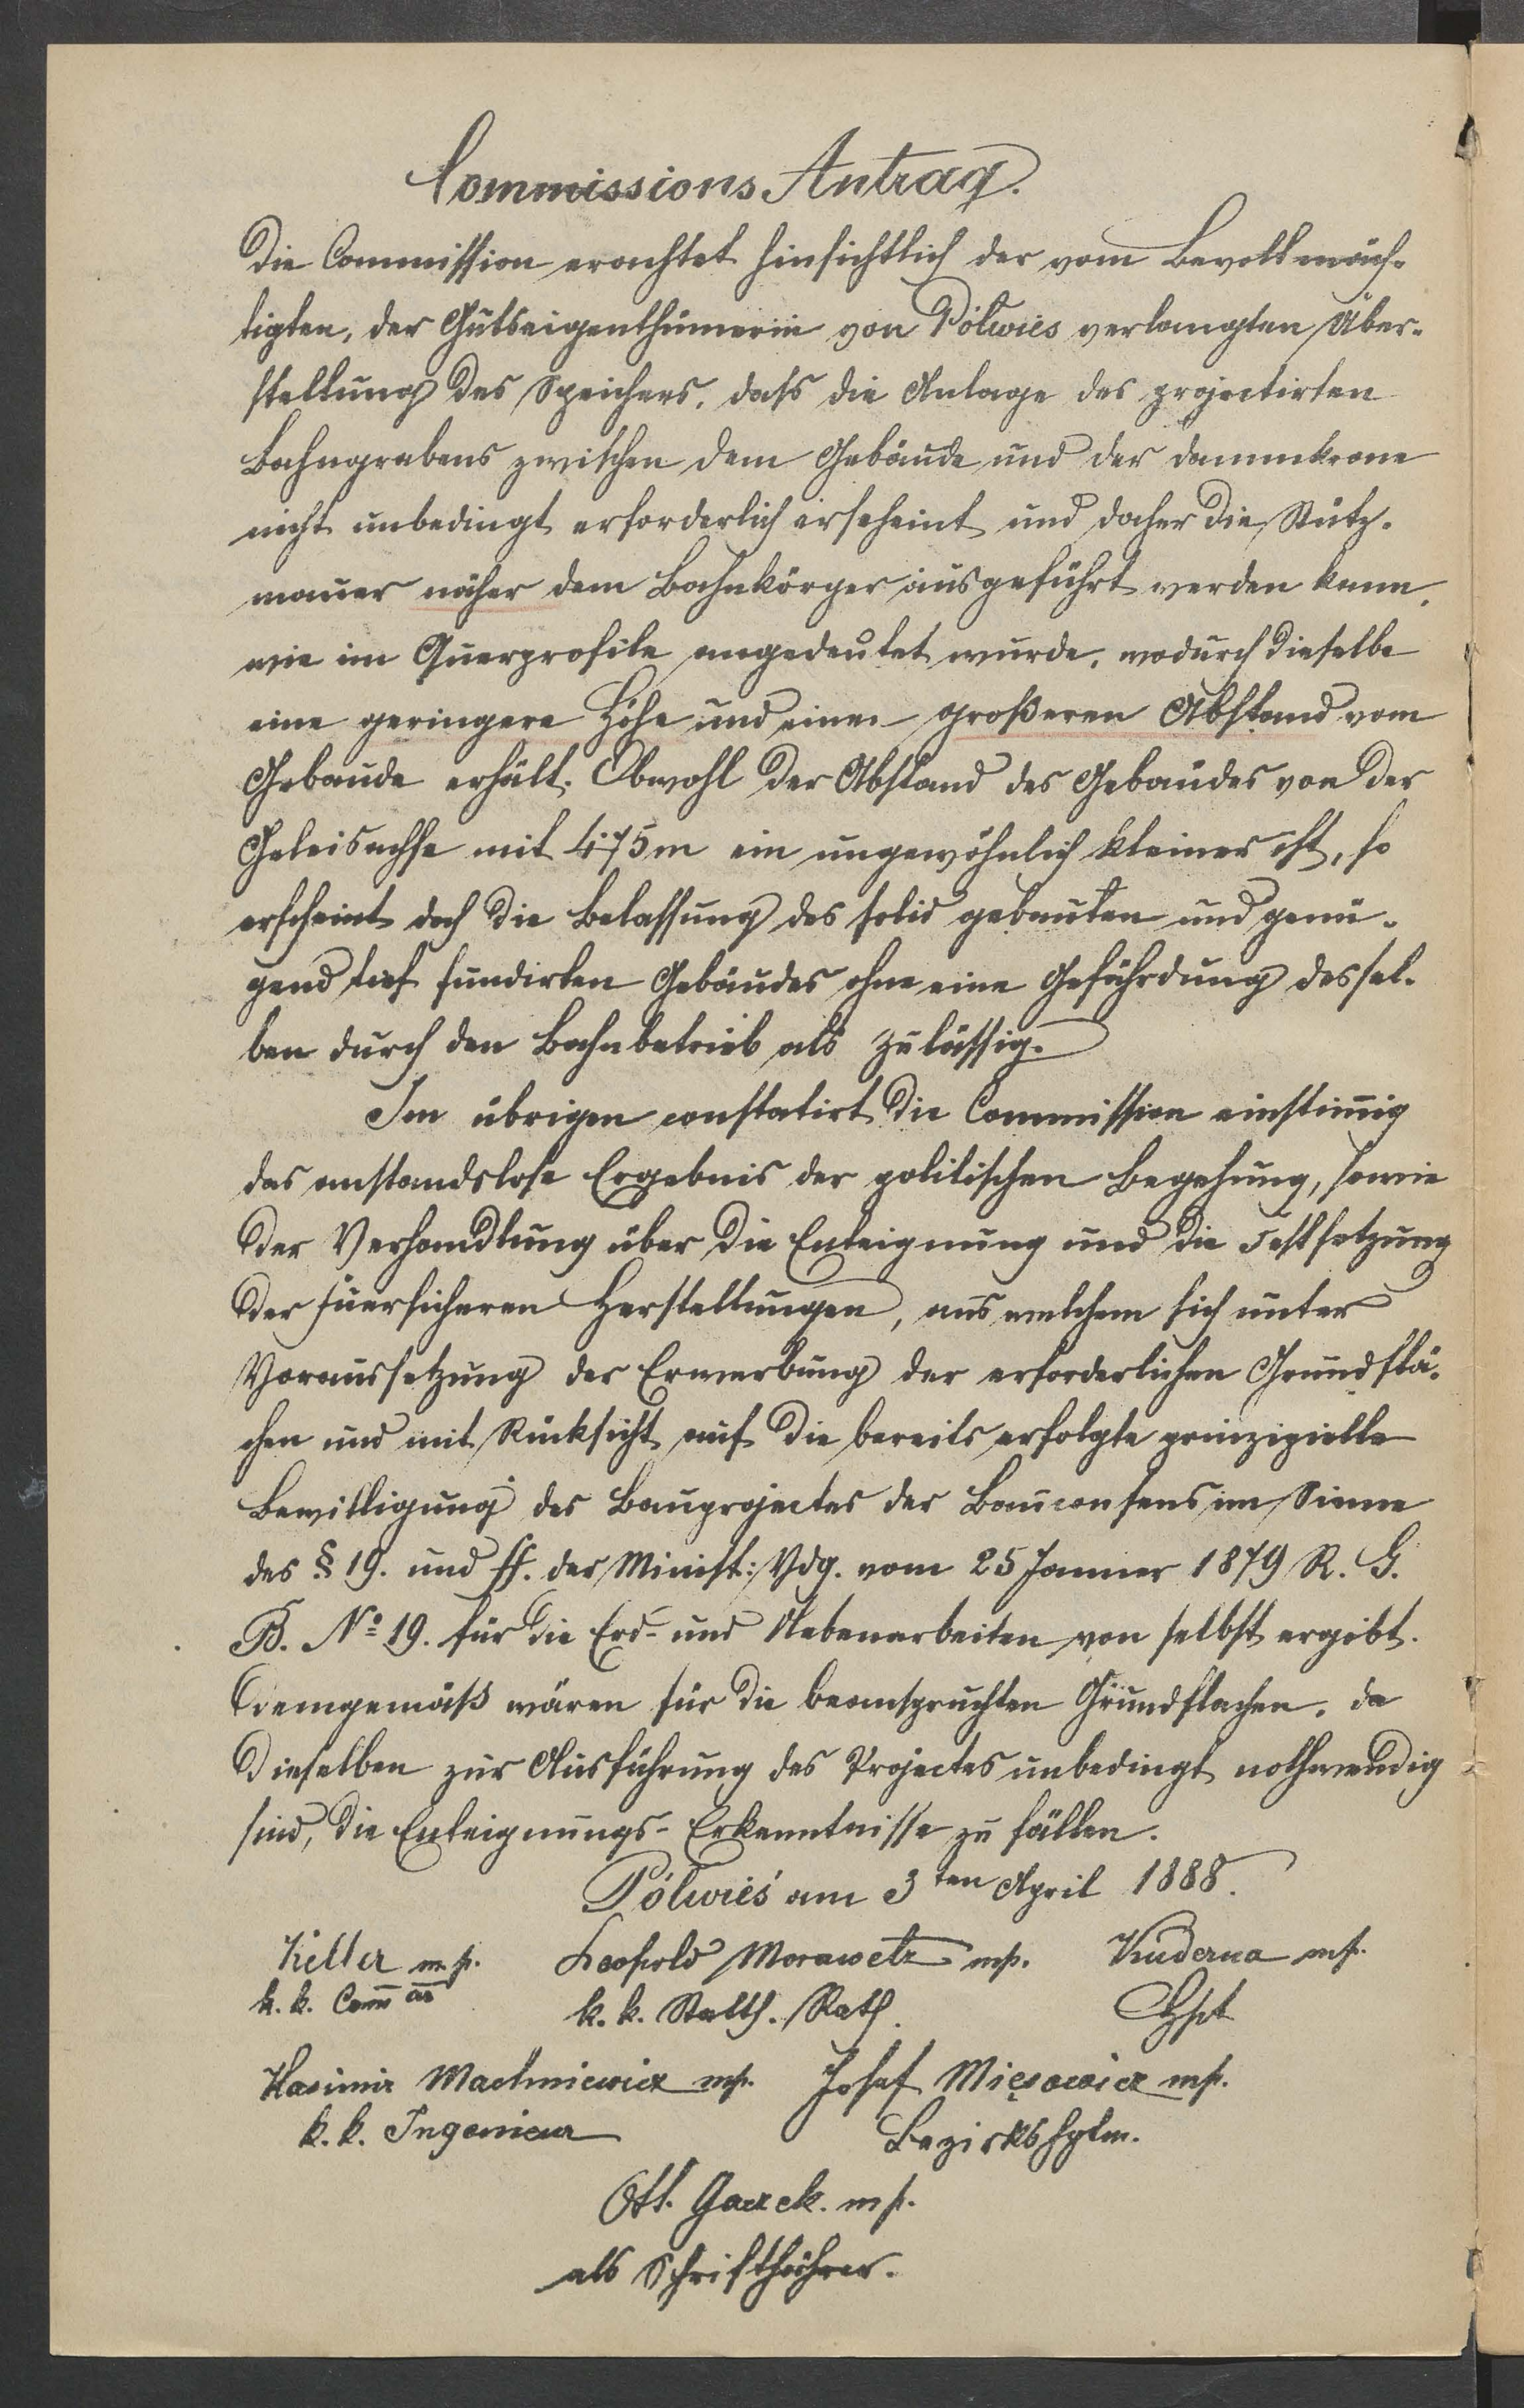 Commissions Antrag.
Die Commission erachtet hinsichtlich der vom Bevollmäch-
tigten, der Gutseigenthümerin von Pólwieś verlangten Über-
stellung des Speichers, daß die Anlage des projectirten
Bahngrabens zwischen dem Gebäude und der Dammkrone
nicht unbedingt erforderlich erscheint und daher die Stütz-
mauer näher dem Bahnkörper ausgeführt werden kann,
wie im Querprofile angedeutet wurde, wodurch dieselbe
eine geringere Höhe und einen großeren Abstand vom
Gebaude erhält. Obwohl der Abstand des Gebäudes von der
Geleisachse mit 4·75m ein ungewöhnlich kleiner ist, so
erscheint doch die Belassung des solid gebauten und genü-
gend tief fundirten Gebäudes ohne eine Gefährdung dessel-
ben durch den Bahnbetrieb als zulässig.
Im übrigen constatirt die Commission einstimig
das anstandslose Ergebnis der politischen Begehung, sowie
der Verhandlung über die Enteignung und die Festsetzung
der feuersicheren Herstellungen, aus welchem sich unter
Voraussetzung der Erwerbung der erforderlichen Grundflä-
chen und mit Rücksicht auf die bereits erfolgte prinzipielle
Bewilligung des Bauprojectes der Bauconsens im Sinne
des § 19. und ff. der Minist: Vdg. vom 25 Janner 1879 R. G.
B. No 19. für die Erd- und Nebenarbeiten von selbst ergibt.
Demgemäß wären für die beanspruchten Grundflachen, da
dieselben zur Ausführung des Projectes unbedingt nothwendig
sind, die Enteignungs-Erkenntnisse zu fällen.
Pólwieś am 3ten April 1888.
Keller mp. Leopold Morawetz mp. Kuderna mp.
k. k. Commär k. k. Statth. Rath. Hpt
Kasimir Machniewicz mp. Josef Mięsowicz mp.
k. k. Ingenieur Bezirkshptm.
Ott. Gaczek. mp.
als Schriftführer.